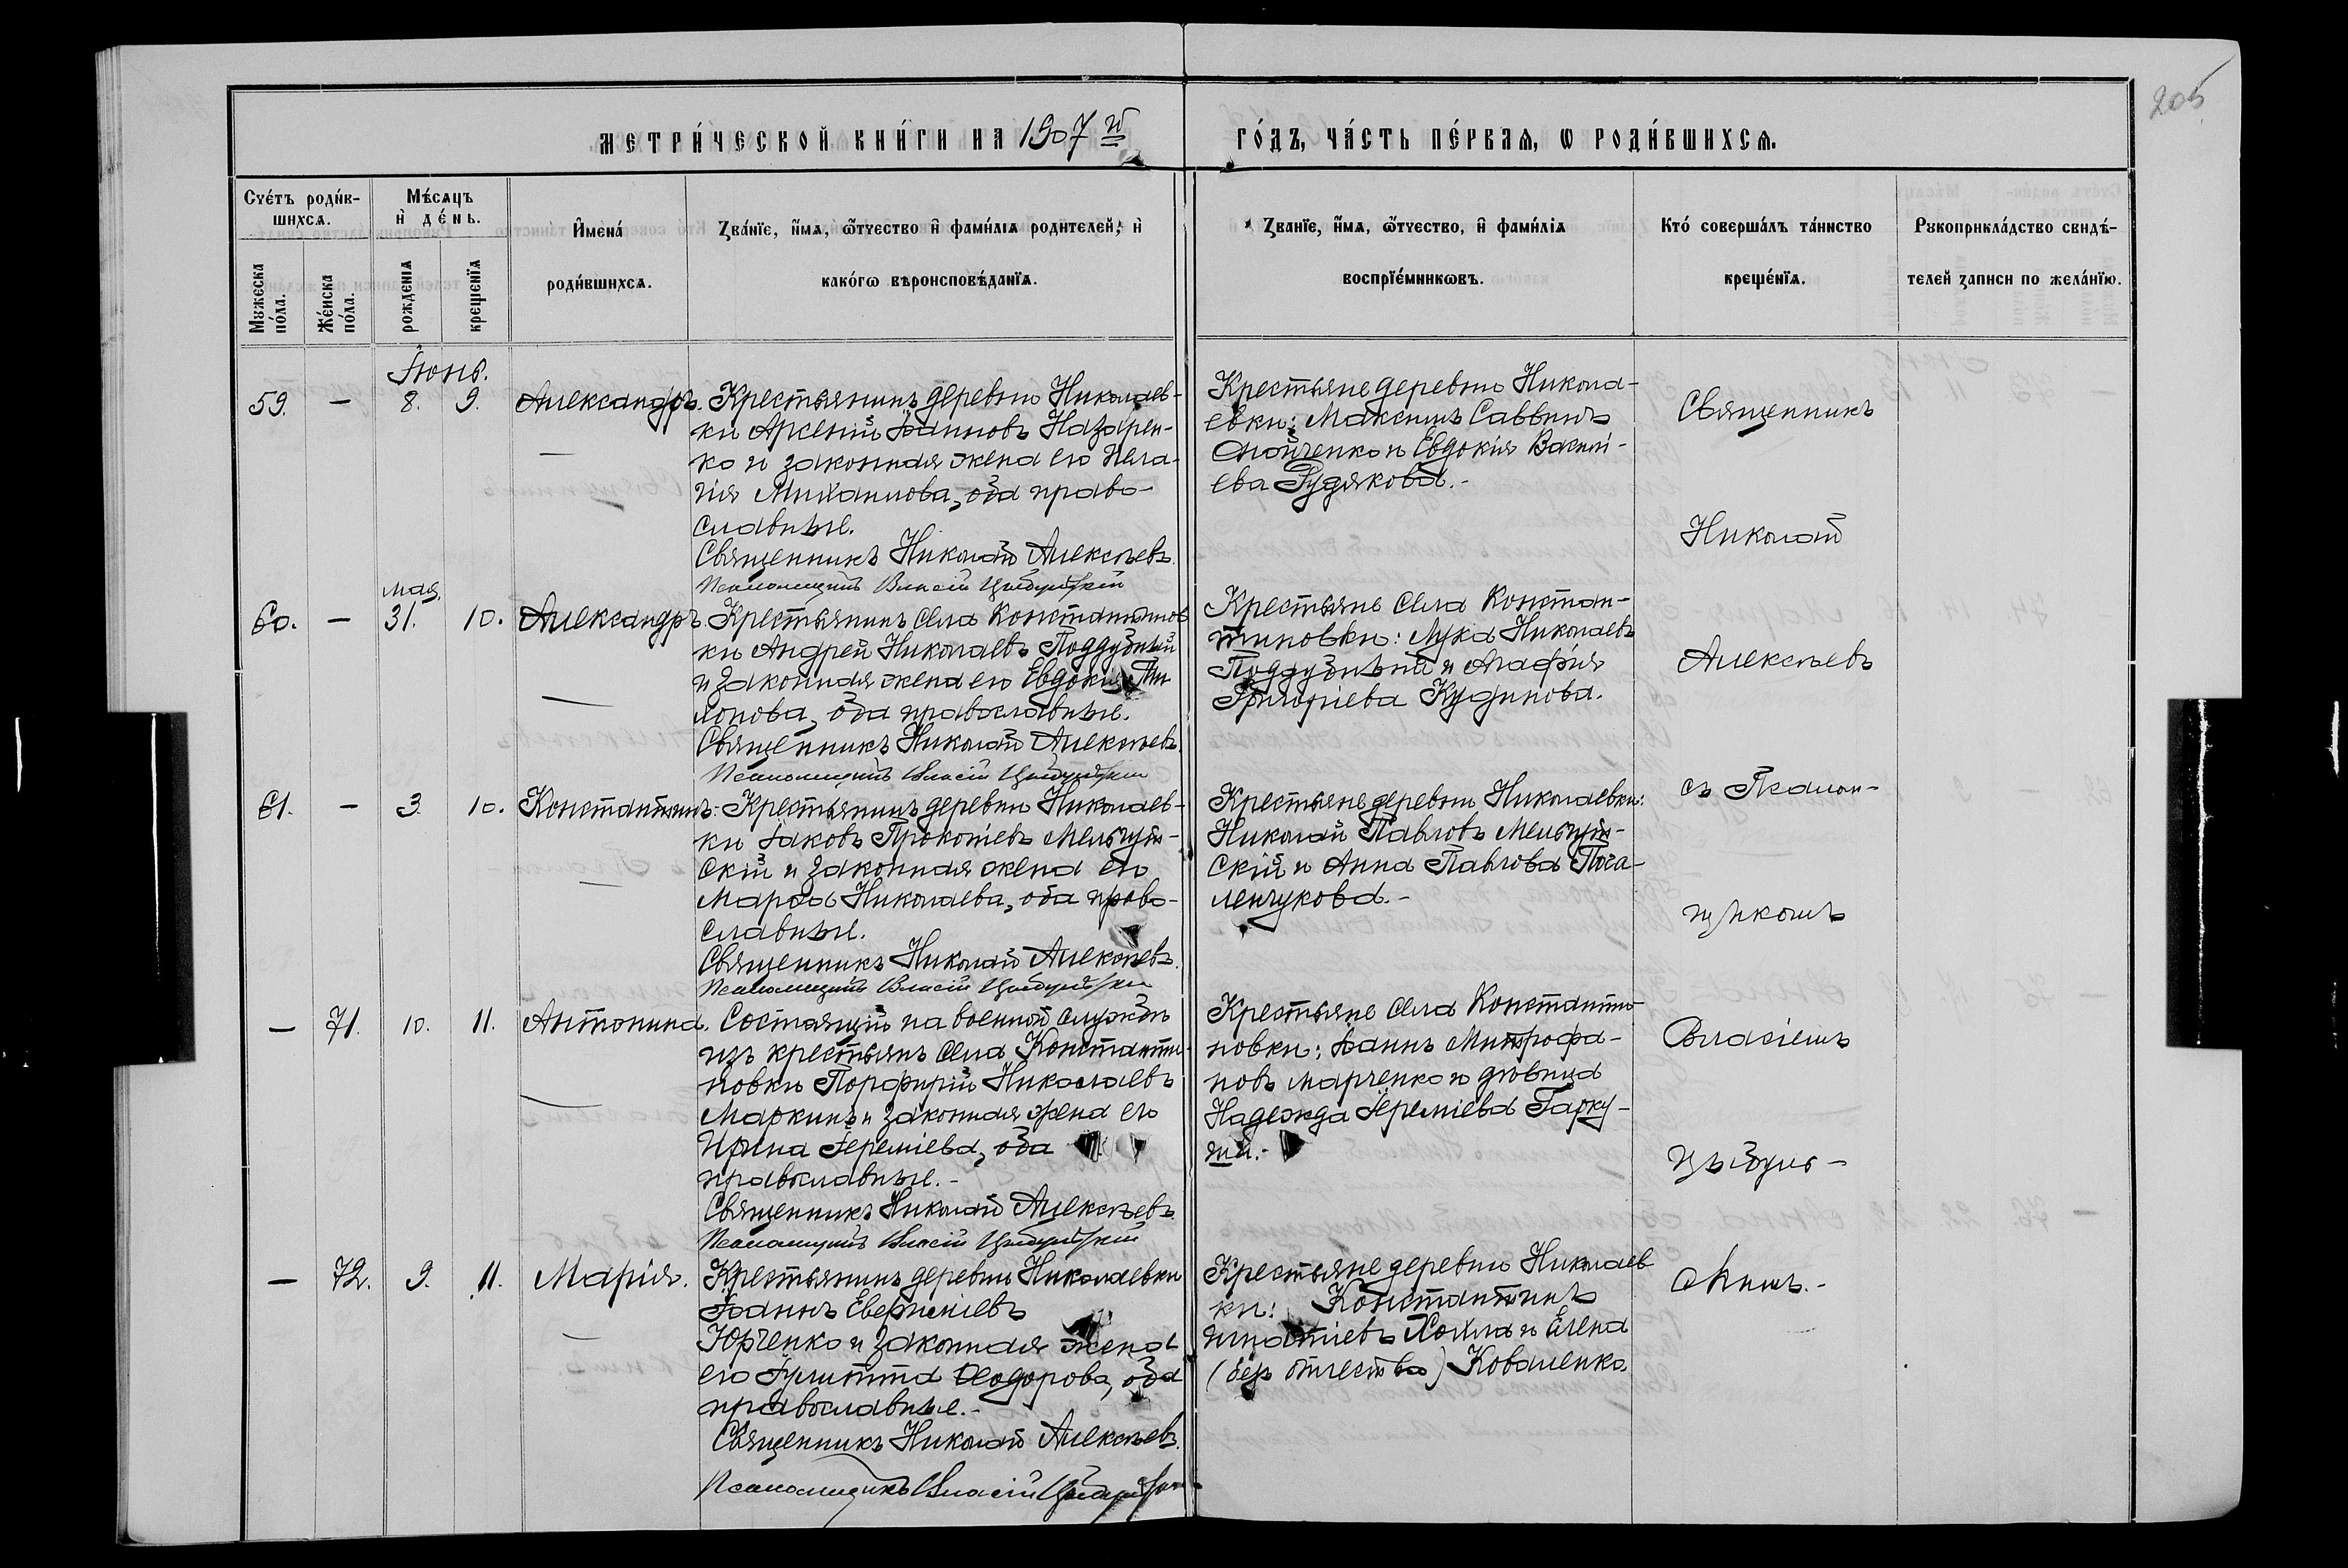 205
МЕТРИ́ЧЕСКОЙ КНИ́ГИ НА 1907й ГО́ДЪ, ЧА́СТЬ ПЕ́РВАѦ, Ѡ РОДИ́ВШИХСѦ.
Сче́тъ роди́в-
шихсѧ.
Мѣ́сѧцъ
и҆ де́нь.
Мꙋжеска
по́ла.
Же́нска
по́ла.
рожденїѧ
крещенїѧ
И҆мена́
роди́вшихсѧ.
Зва́нїе, и҆́мѧ, ѻ҆́тчество и҆ фами́лїѧ родителей, и҆
како́гѡ вѣроисповѣ́данїѧ.
Званїе, и҆́мѧ, ѻ҆́тчество, и҆ фами́лїѧ
воспрїе́мникѡвъ.
Кто́ соверша́лъ та́инство
креще́нїѧ.
Рꙋкоприкла́дство свидѣ́-
телей записи по жела́нїю.
Іюнь.
59. — 8. 9. Александръ.
Крестьянинъ деревни Николаев-
ки Арсеній Іоанновъ Назарен-
ко и законная жена его Пела-
гія Михаилова, оба право-
славные.
Священникъ Николай Алексѣевъ
Псаломщикъ Власій Цыбульскій
Крестьяне деревни Никола-
евки: Максимъ Саввинъ
Евдокія Василі-
ева Рудякова.-
мая.
60. — 31. 10. Александръ
Крестьянинъ села Константинов
ки Андрей Николаевъ Поддубный
и законная жена его Евдокія Фи
лонова, оба православные.
Священникъ Николай Алексѣевъ
Псаломщикъ Власій Цыбульскій
Крестьяне села Констан-
тиновки: Лука Николаевъ
Поддубный и Агафія
Григоріева Кудинова.
61. — 3. 10. Константинъ.
Крестьянинъ деревни Николаев-
ки Іаковъ Прокопіевъ Мельчут-
скій и законная жена его
Марѳа Николаева, оба право-
славные.
Священникъ Николай Алексѣевъ
Псаломщикъ Власій Цыбульскій
Крестьяне деревни Николаевки:
Николай Павловъ Мельчут-
скій и Анна Павлова Пога-
ленчукова.-
— 71. 10. 11. Антонина.
Состоящій на военной службѣ
изъ крестьянъ села Константи-
новки Порфирій Николаевъ
Маркинъ и законная жена его
Ирина Іереміева, оба
православные.-
Священникъ Николай Алексѣевъ
Псаломщикъ Власій Цыбульскій
Крестьяне села Константи-
новки: Іоаннъ Митрофа-
новъ Марченко и дѣвица
Надежда Іереміева Гарку-
ша.-
— 72. 9. 11. Марія.
Крестьянинъ деревни Николаевки
Іоаннъ Евфиміевъ
Юрченко и законная жена
его Іулитта Ѳеодорова, оба
православные.-
Священникъ Николай Алексѣевъ
Псаломщикъ Власій Цыбульскій
Крестьяне деревни Николаев
ки: Константинъ
Игнатіевъ Хохла и Елена
(безъ отчества) Коваленко.
Священникъ
Николай
Алексѣевъ
съ Псалом-
щикомъ
Власіемъ
Цыбуль-
скимъ.-